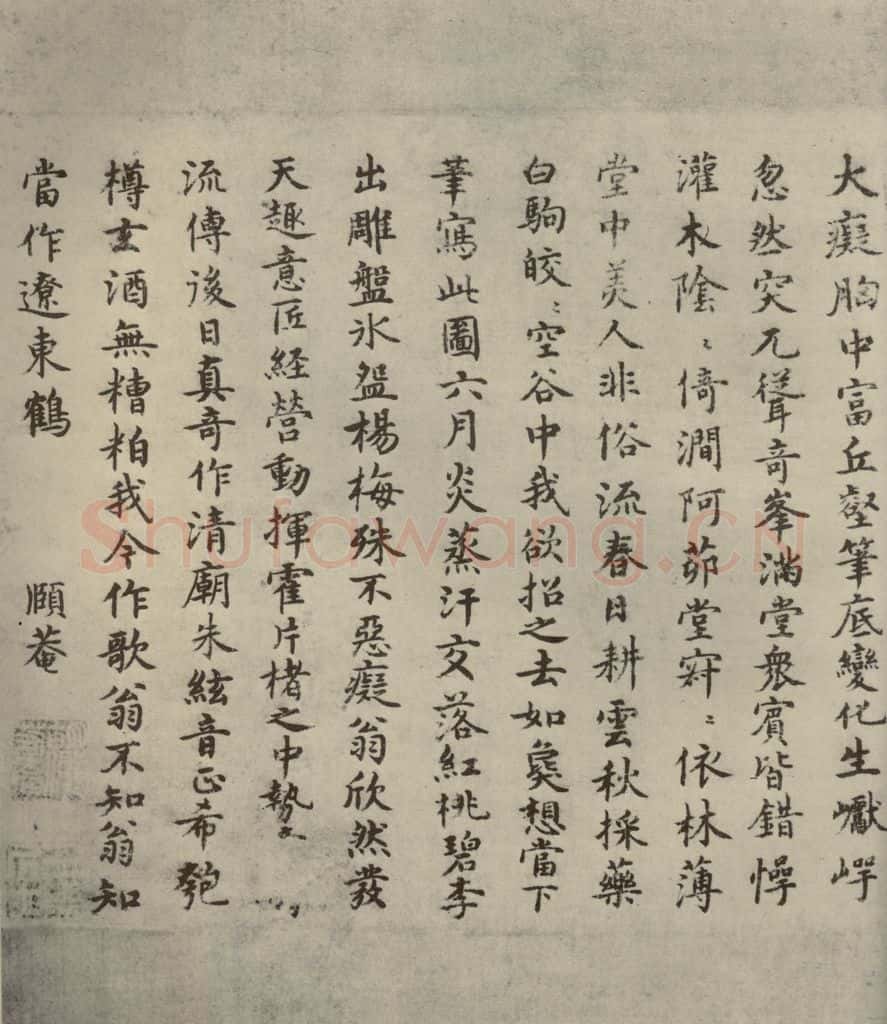 大癡胸中富丘壑筆底變化生巘崿
忽然突兀聳奇峯滿堂衆賓皆錯愕
灌木陰〻倚澗阿茆堂𡧘〻依林薄
堂中美人非俗流春日耕雲秋採藥
白駒皎〻空谷中我欲招之去如𡙇想當下
筆寫此圖六月炎蒸汗交落紅桃碧李
出雕盤氷盌楊梅殊不惡癡翁欣然發
天趣意匠経營動揮霍片楮之中勢
流傳後日真奇作清廟朱絃音正希匏
樽玄酒無糟粕我今作歌翁不知翁知
當作遼東鶴 頤菴
Shufawang.cn